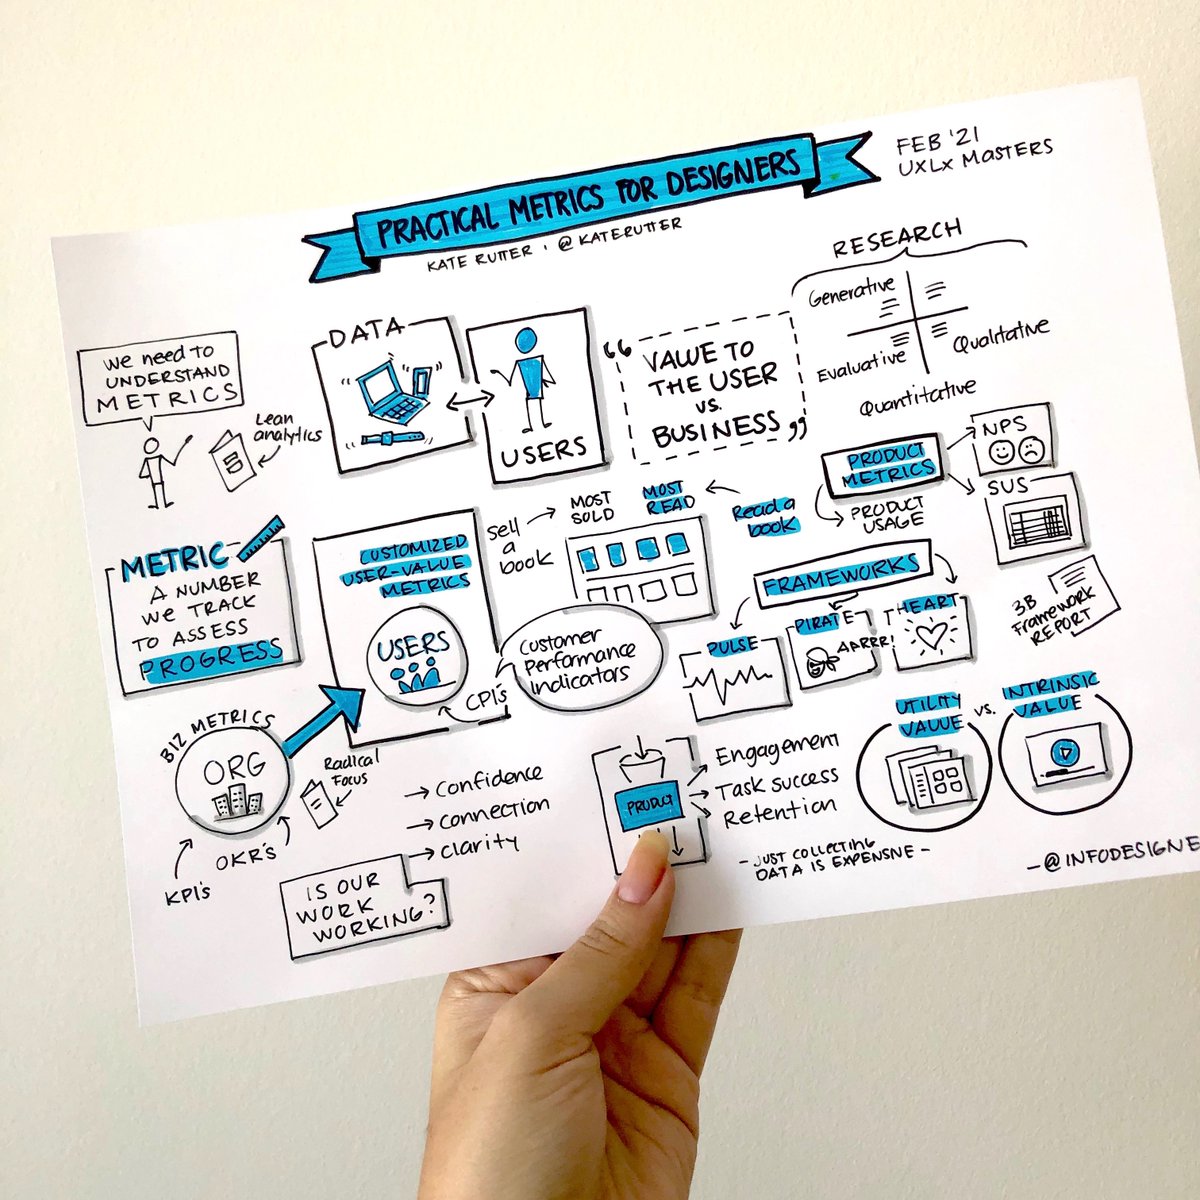 PRACTICAL METRICS FOR DESIGNERS
KATE RUTTER · @KATERUTTER
FEB '21
UXLx MASTERS
we need to
UNDERSTAND
METRICS
Lean
analytics
DATA
USERS
“ VALUE TO
THE USER
vs.
BUSINESS ”
RESEARCH
Generative
Evaluative
Qualitative
Quantitative
METRIC
A NUMBER
WE TRACK
TO ASSESS
PROGRESS
CUSTOMIZED
USER-VALUE
METRICS
USERS
sell
a
book
MOST
SOLD
MOST
READ
Read a
book
PRODUCT
METRICS
PRODUCT
USAGE
NPS
SUS
FRAMEWORKS
PULSE
PIRATE
AARRR!
HEART
3B
Framework
REPORT
CPI's
Customer
Performance
Indicators
BIZ METRICS
ORG
KPI's
OKR's
Radical
Focus
→ Confidence
→ connection
→ clarity
IS OUR
WORK
WORKING?
PRODUCT
Engagement
Task success
Retention
UTILITY
VALUE
vs.
INTRINSIC
VALUE
- JUST COLLECTING
DATA IS EXPENSIVE -
-@INFODESIGNE